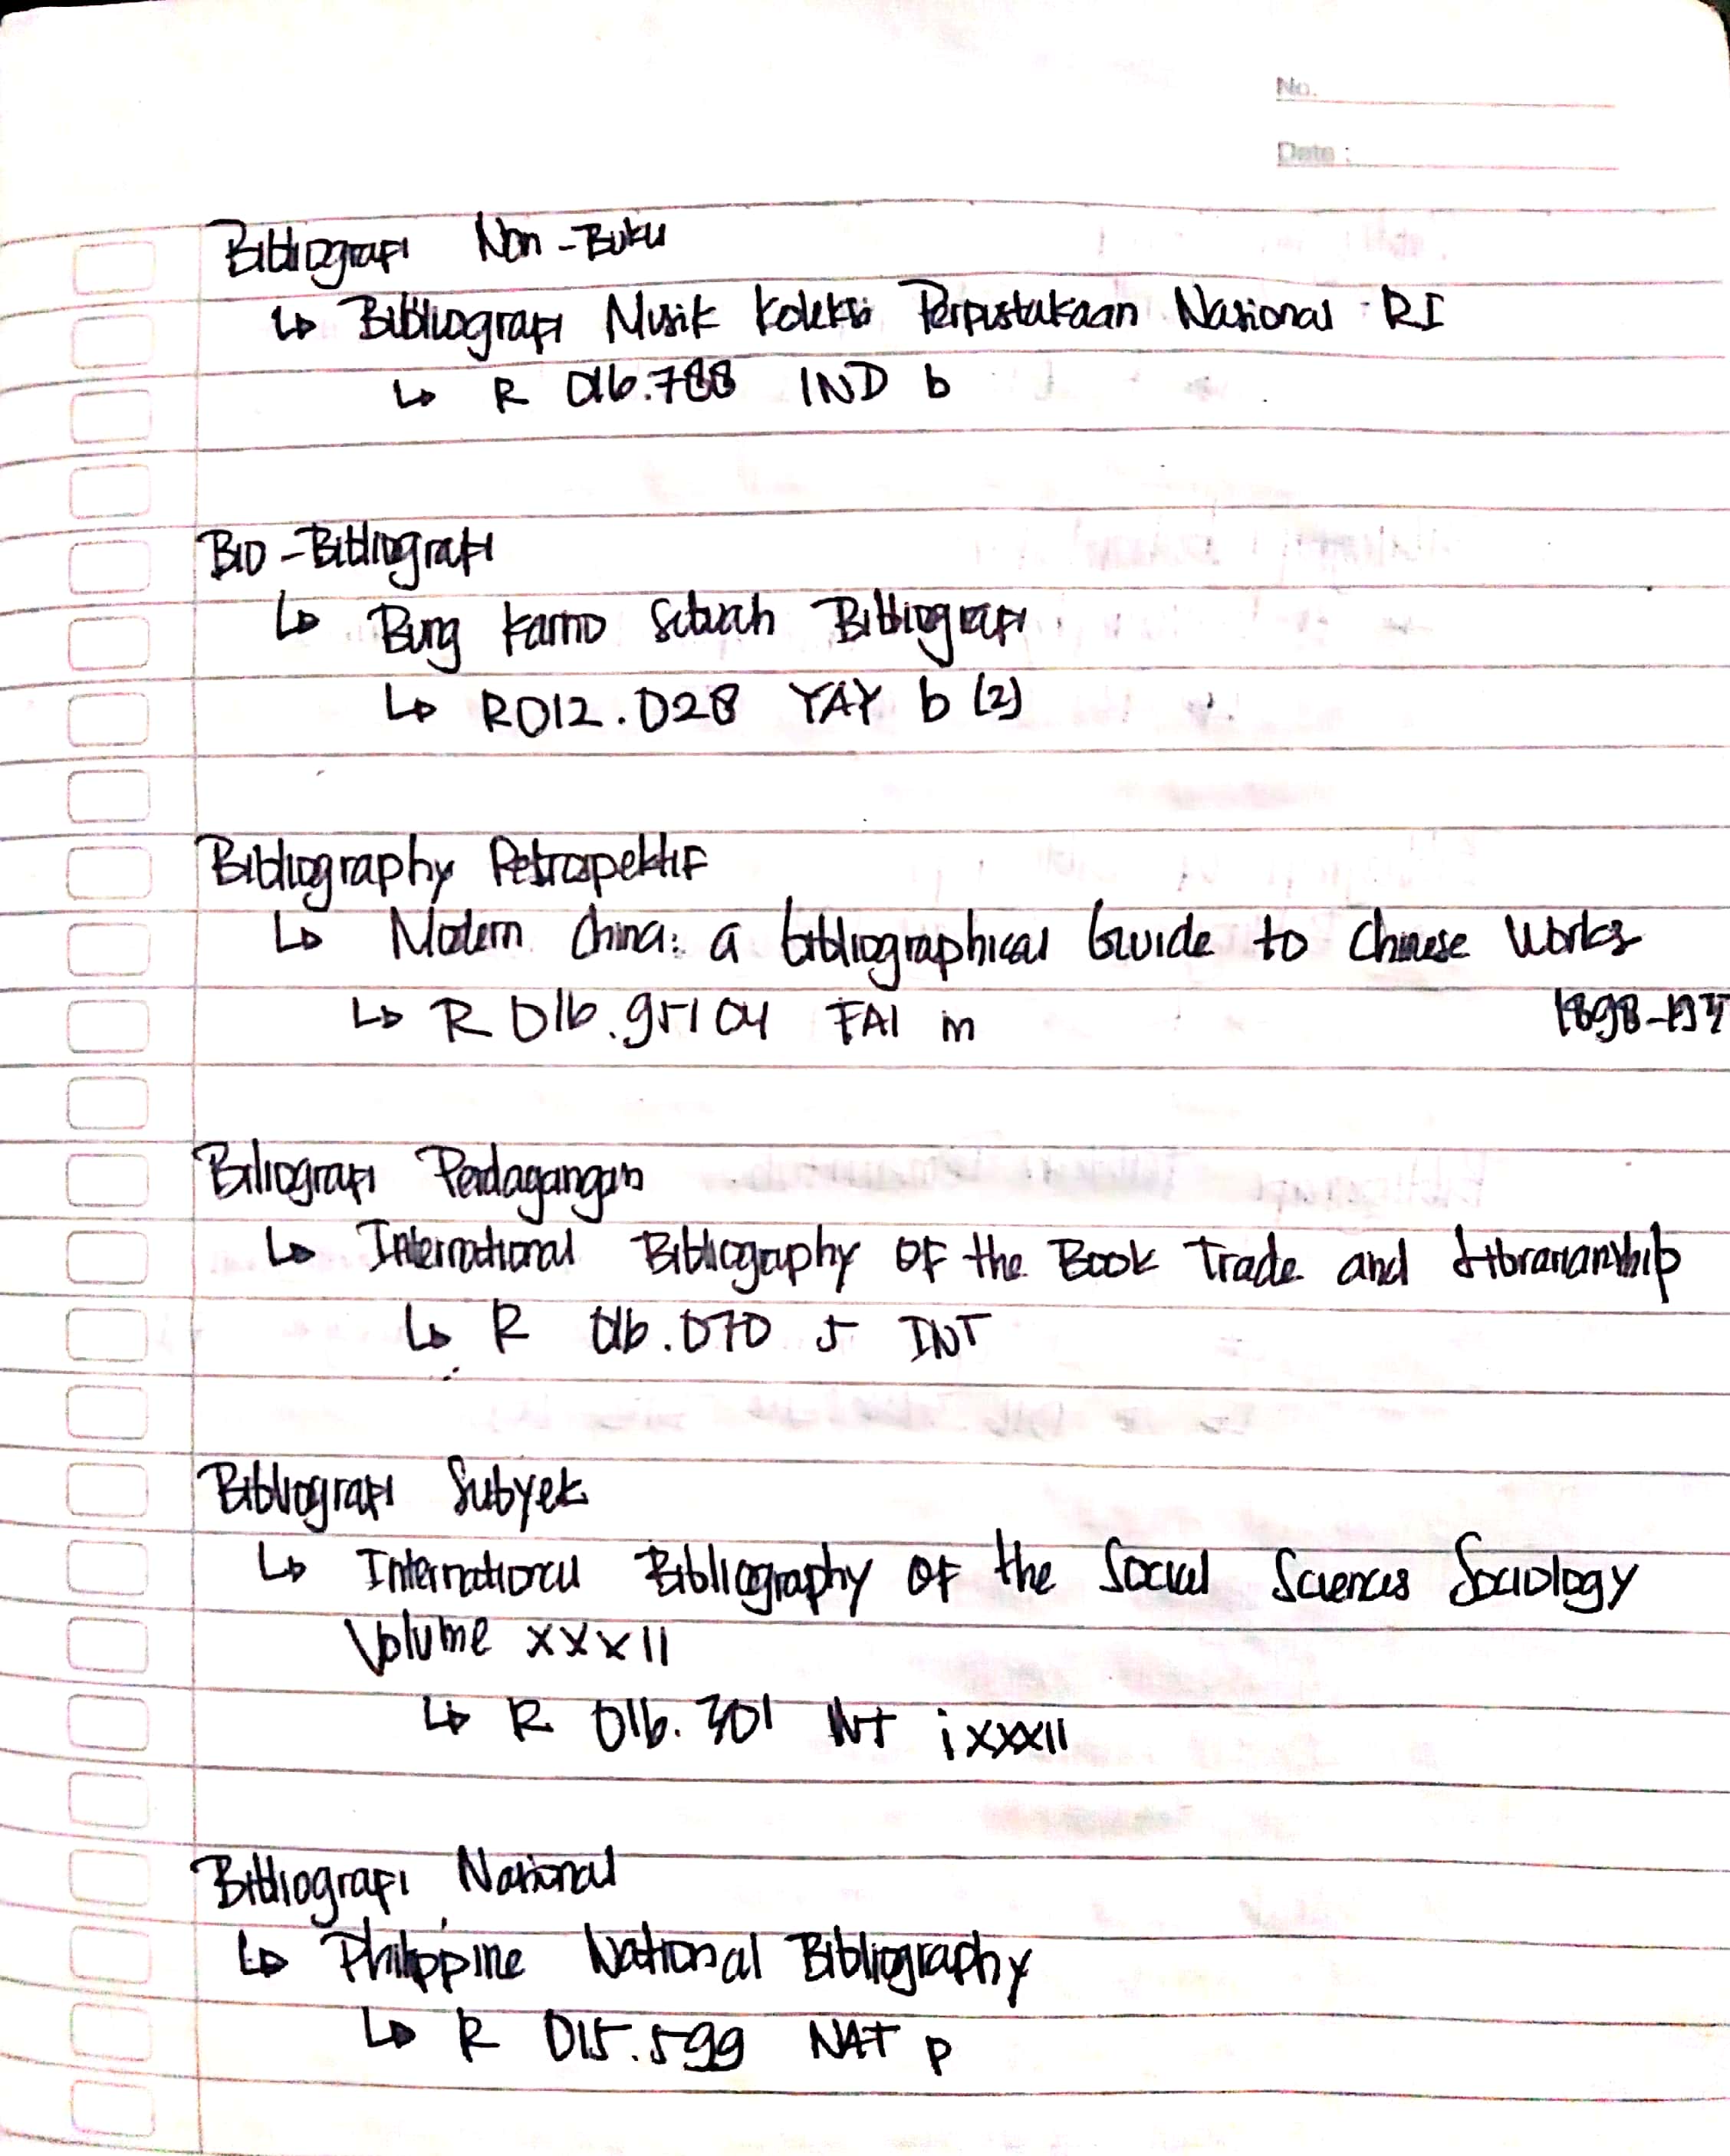 No.
Date :
Bibliografi Non-Buku
↳ Bibliografi Musik Koleksi Perpustakaan Nasional RI
↳ R 016.788 IND b
Bio-Bibliografi
↳ Bung Karno Sebuah Bibliografi
↳ R012.028 YAY b (2)
Bibliography Retrospektif
↳ Modern China: a bibliographical Guide to Chinese Works
↳ R 016.95104 FAI m 1898-1937
Biliografi Perdagangan
↳ International Bibliography of the Book Trade and Librarianship
↳ R 016.070 5 INT
Bibliografi Subyek
↳ International Bibliography of the Social Sciences Sociology
Volume XXXII
↳ R 016.301 INT i XXXII
Bibliografi Nasional
↳ Philippine National Bibliography
↳ R 015.599 NAT p